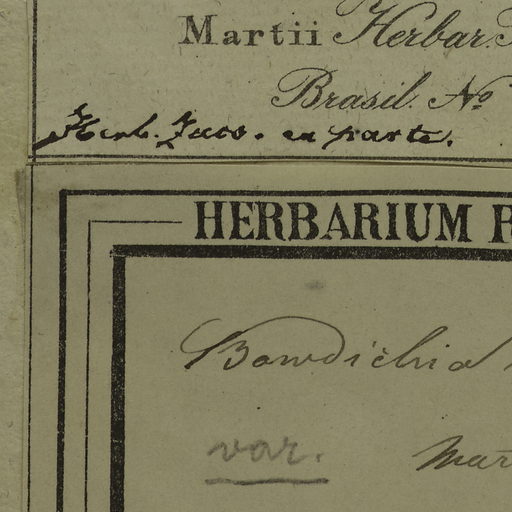 Martii Herbar.
Brasil. No
Herb. Jacq. ex parte.
HERBARIUM
Bowdichia
var. Mar